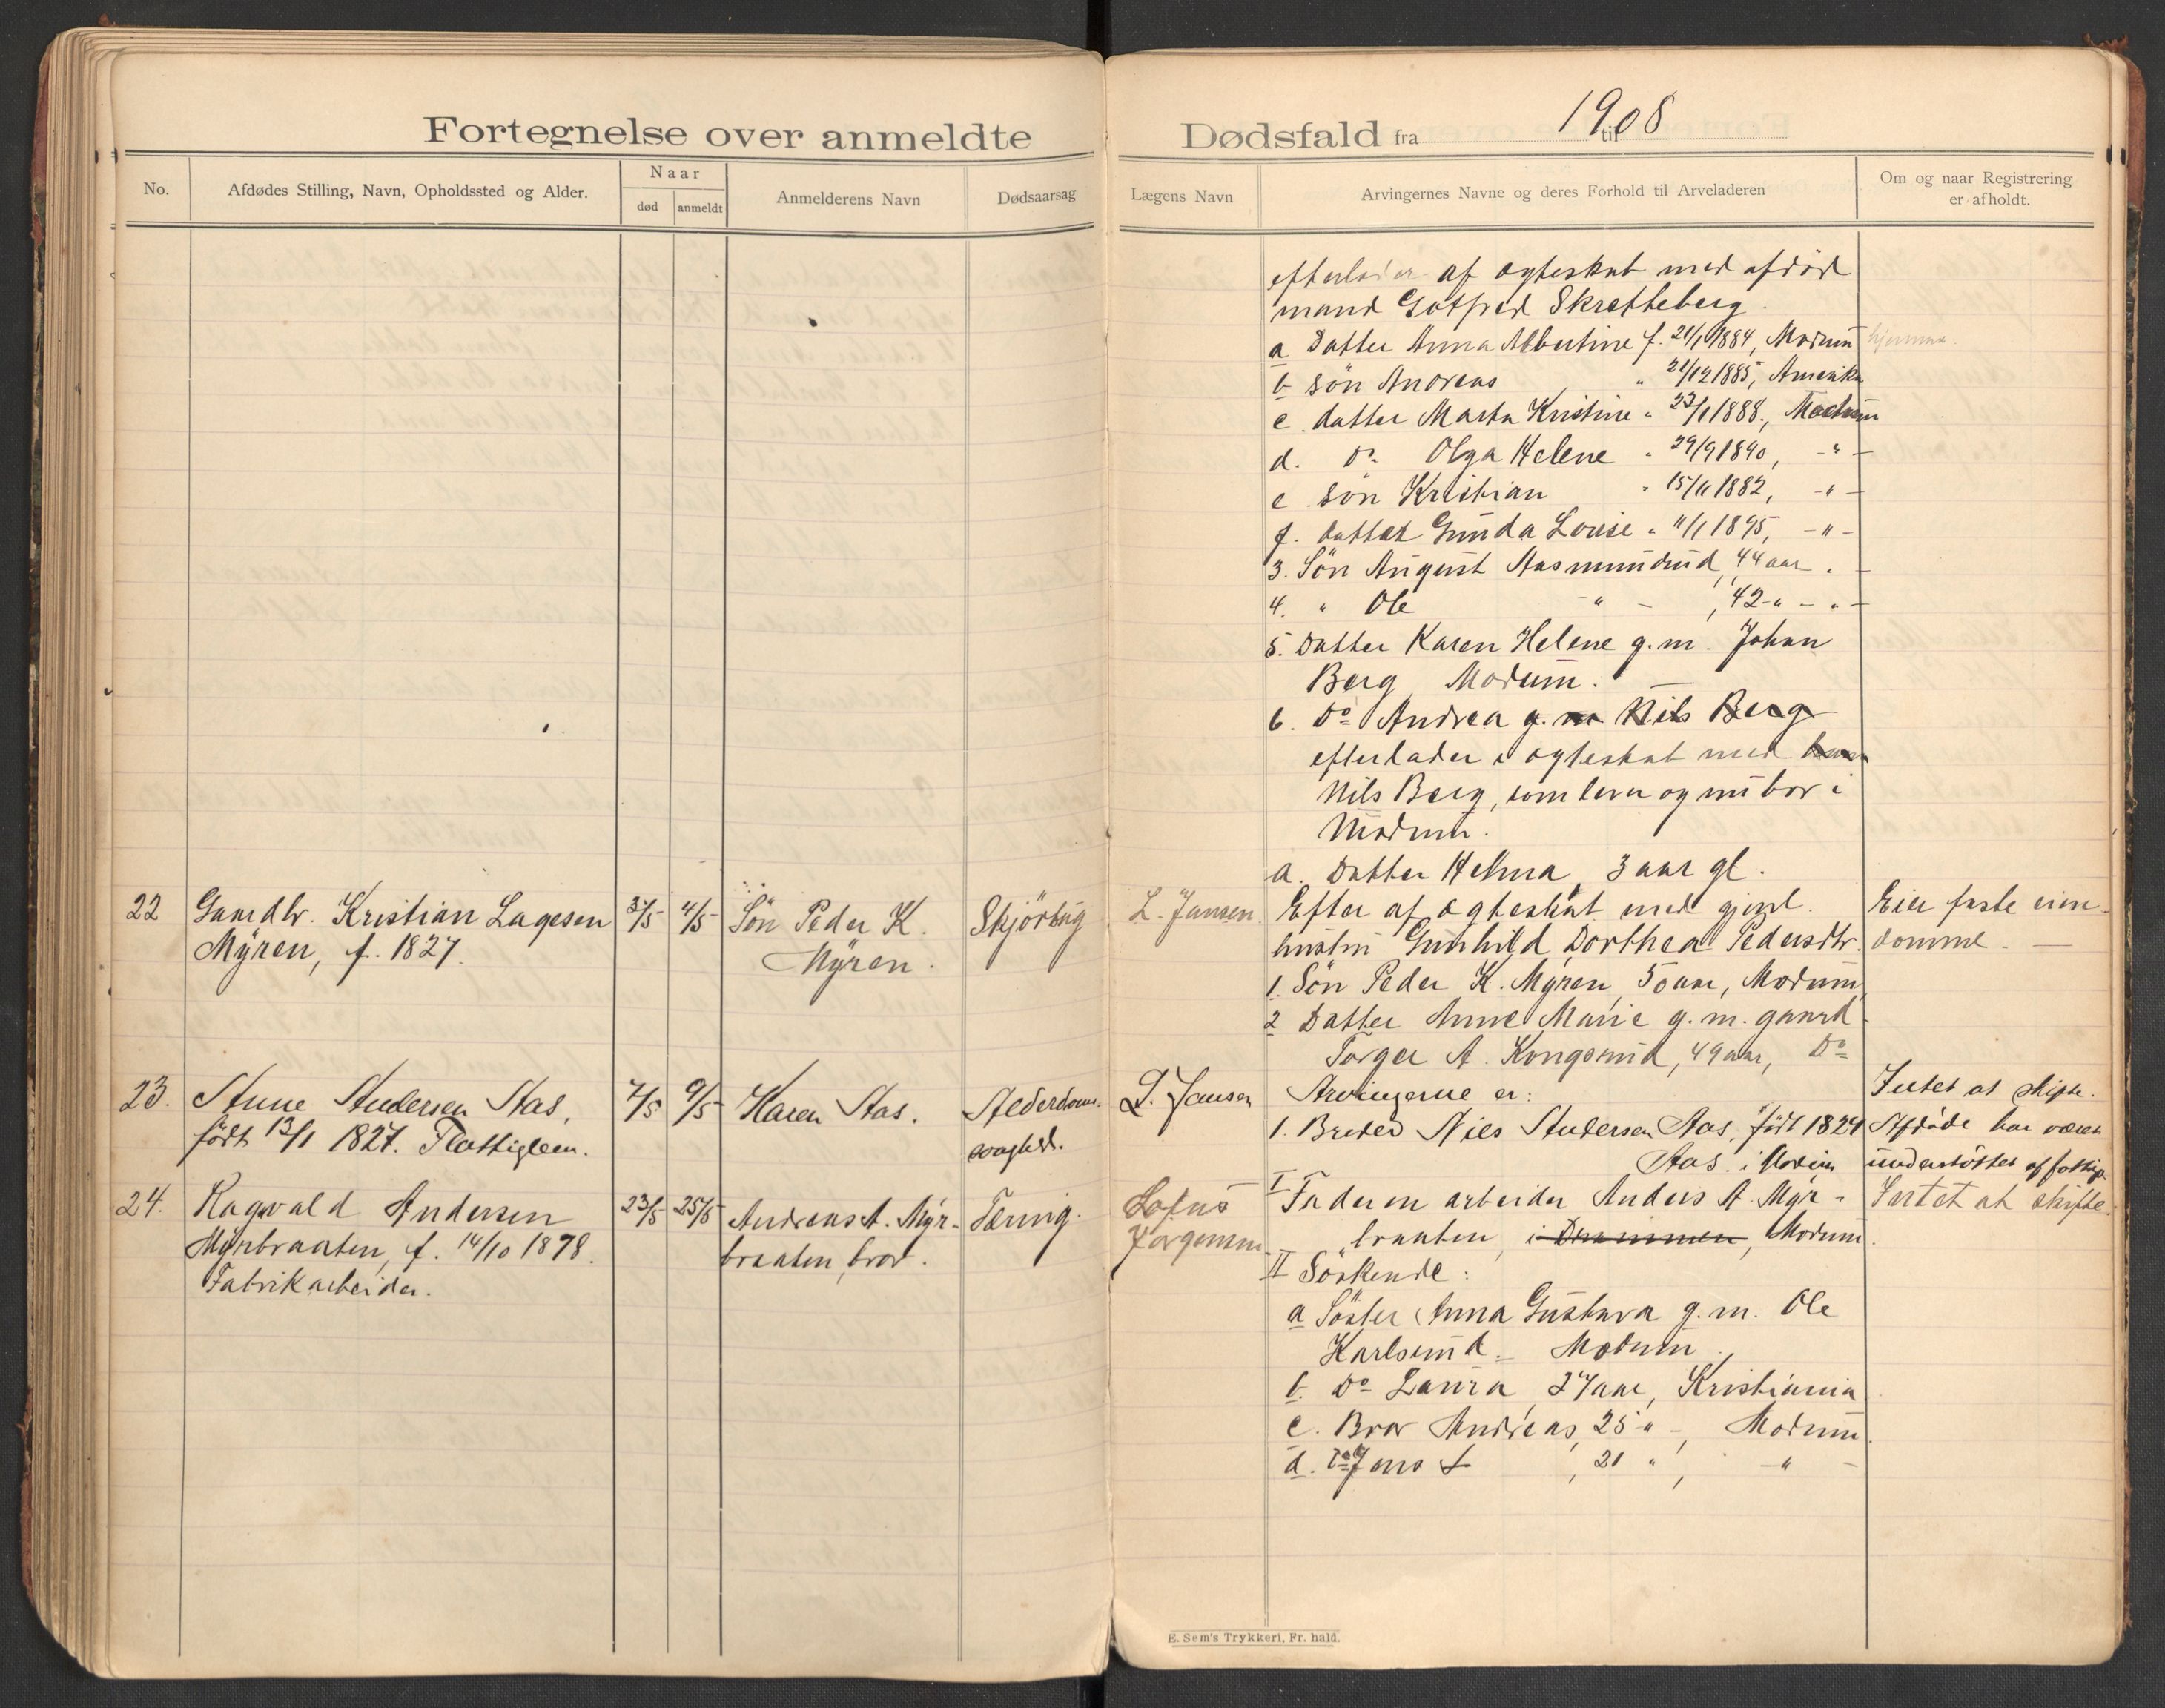 Fortegnelse over anmeldte Dødsfald fra til 1908
No.
Afdødes Stilling, Navn, Opholdssted og Alder.
Naar
død
anmeldt
Anmelderens Navn
Dødsaarsag
Lægens Navn
Arvingernes Navne og deres Forhold til Arveladeren
Om og naar Registrering
er afholdt.
efterlader af ægteskab med afdød
mand Gotfred Skretteberg.
a Datter Anna Albertine f. 21/1 1884, Modum hjemme.
b søn Andreas " 21/12 1885, Amerika
c. datter Marta Kristine " 23/1 1888, Modum
d. Do. Olga Helene " 29/9 1890, -"-
e søn Kristian " 15/11 1882, -"-
f. datter Gunda Louise " 11/1 1895, -"-
3. Søn August Aasmundrud, 44 aar " -
4. " Ole -"- , 42 -"- " -
5. Datter Karen Helene g.m. Johan
Berg, Modum.
6. Do Andrea g. m Nils Berg
efterlader i ægteskab med
Nils Berg, som lever og nu bor i
Modum.
a. Datter Helma, 3 aar gl.
22
Gaardbr. Kristian Lagesen
Myren, f. 1827.
3/5
4/5
Søn Peder K.
Myren.
Skjørbug
L. Jansen.
Efter af ægteskab med gjenl.
hustru Gunhild Dorthea Pedersdtr.
1. Søn Peder K. Myren, 50 aar, Modum,
2 Datter Anne Marie g. m. gaard
Torger A. Kongsrud, 49 aar, Do
Eier faste eien-
domme. -
23.
Anne Andersen Aas,
født 13/1 1827. Fattiglem.
7/5
9/5
Karen Aas.
Alderdoms-
svaghed.
L. Jansen
Arvingerne er:
1. Broder Nils Andersen Aas, født 1824
Aas i Modum
Intet at skifte.
Afdøde har været
understøttet af fattigv.
24.
Ragvald Andersen
Myrbraaten, f. 14/10 1878.
Fabrikarbeider.
23/5
25/5
Andreas A. Myr-
braaten, bror.
Tæring.
Lofus
Jørgensen
I Faderen arbeider Anders A. Myr-
braaten, i Drammen, Modum.
II Søskende:
a Søster Anna Gustava g. m. Ole
Karlsrud. Modum.
b. Do Laura, 27 aar, Kristiania
c. Bror Andreas, 25 " -, Modum.
d. Do Jens A , 21 " , - " -
Intet at skifte.
E. Sem's Trykkeri, Fr. hald.